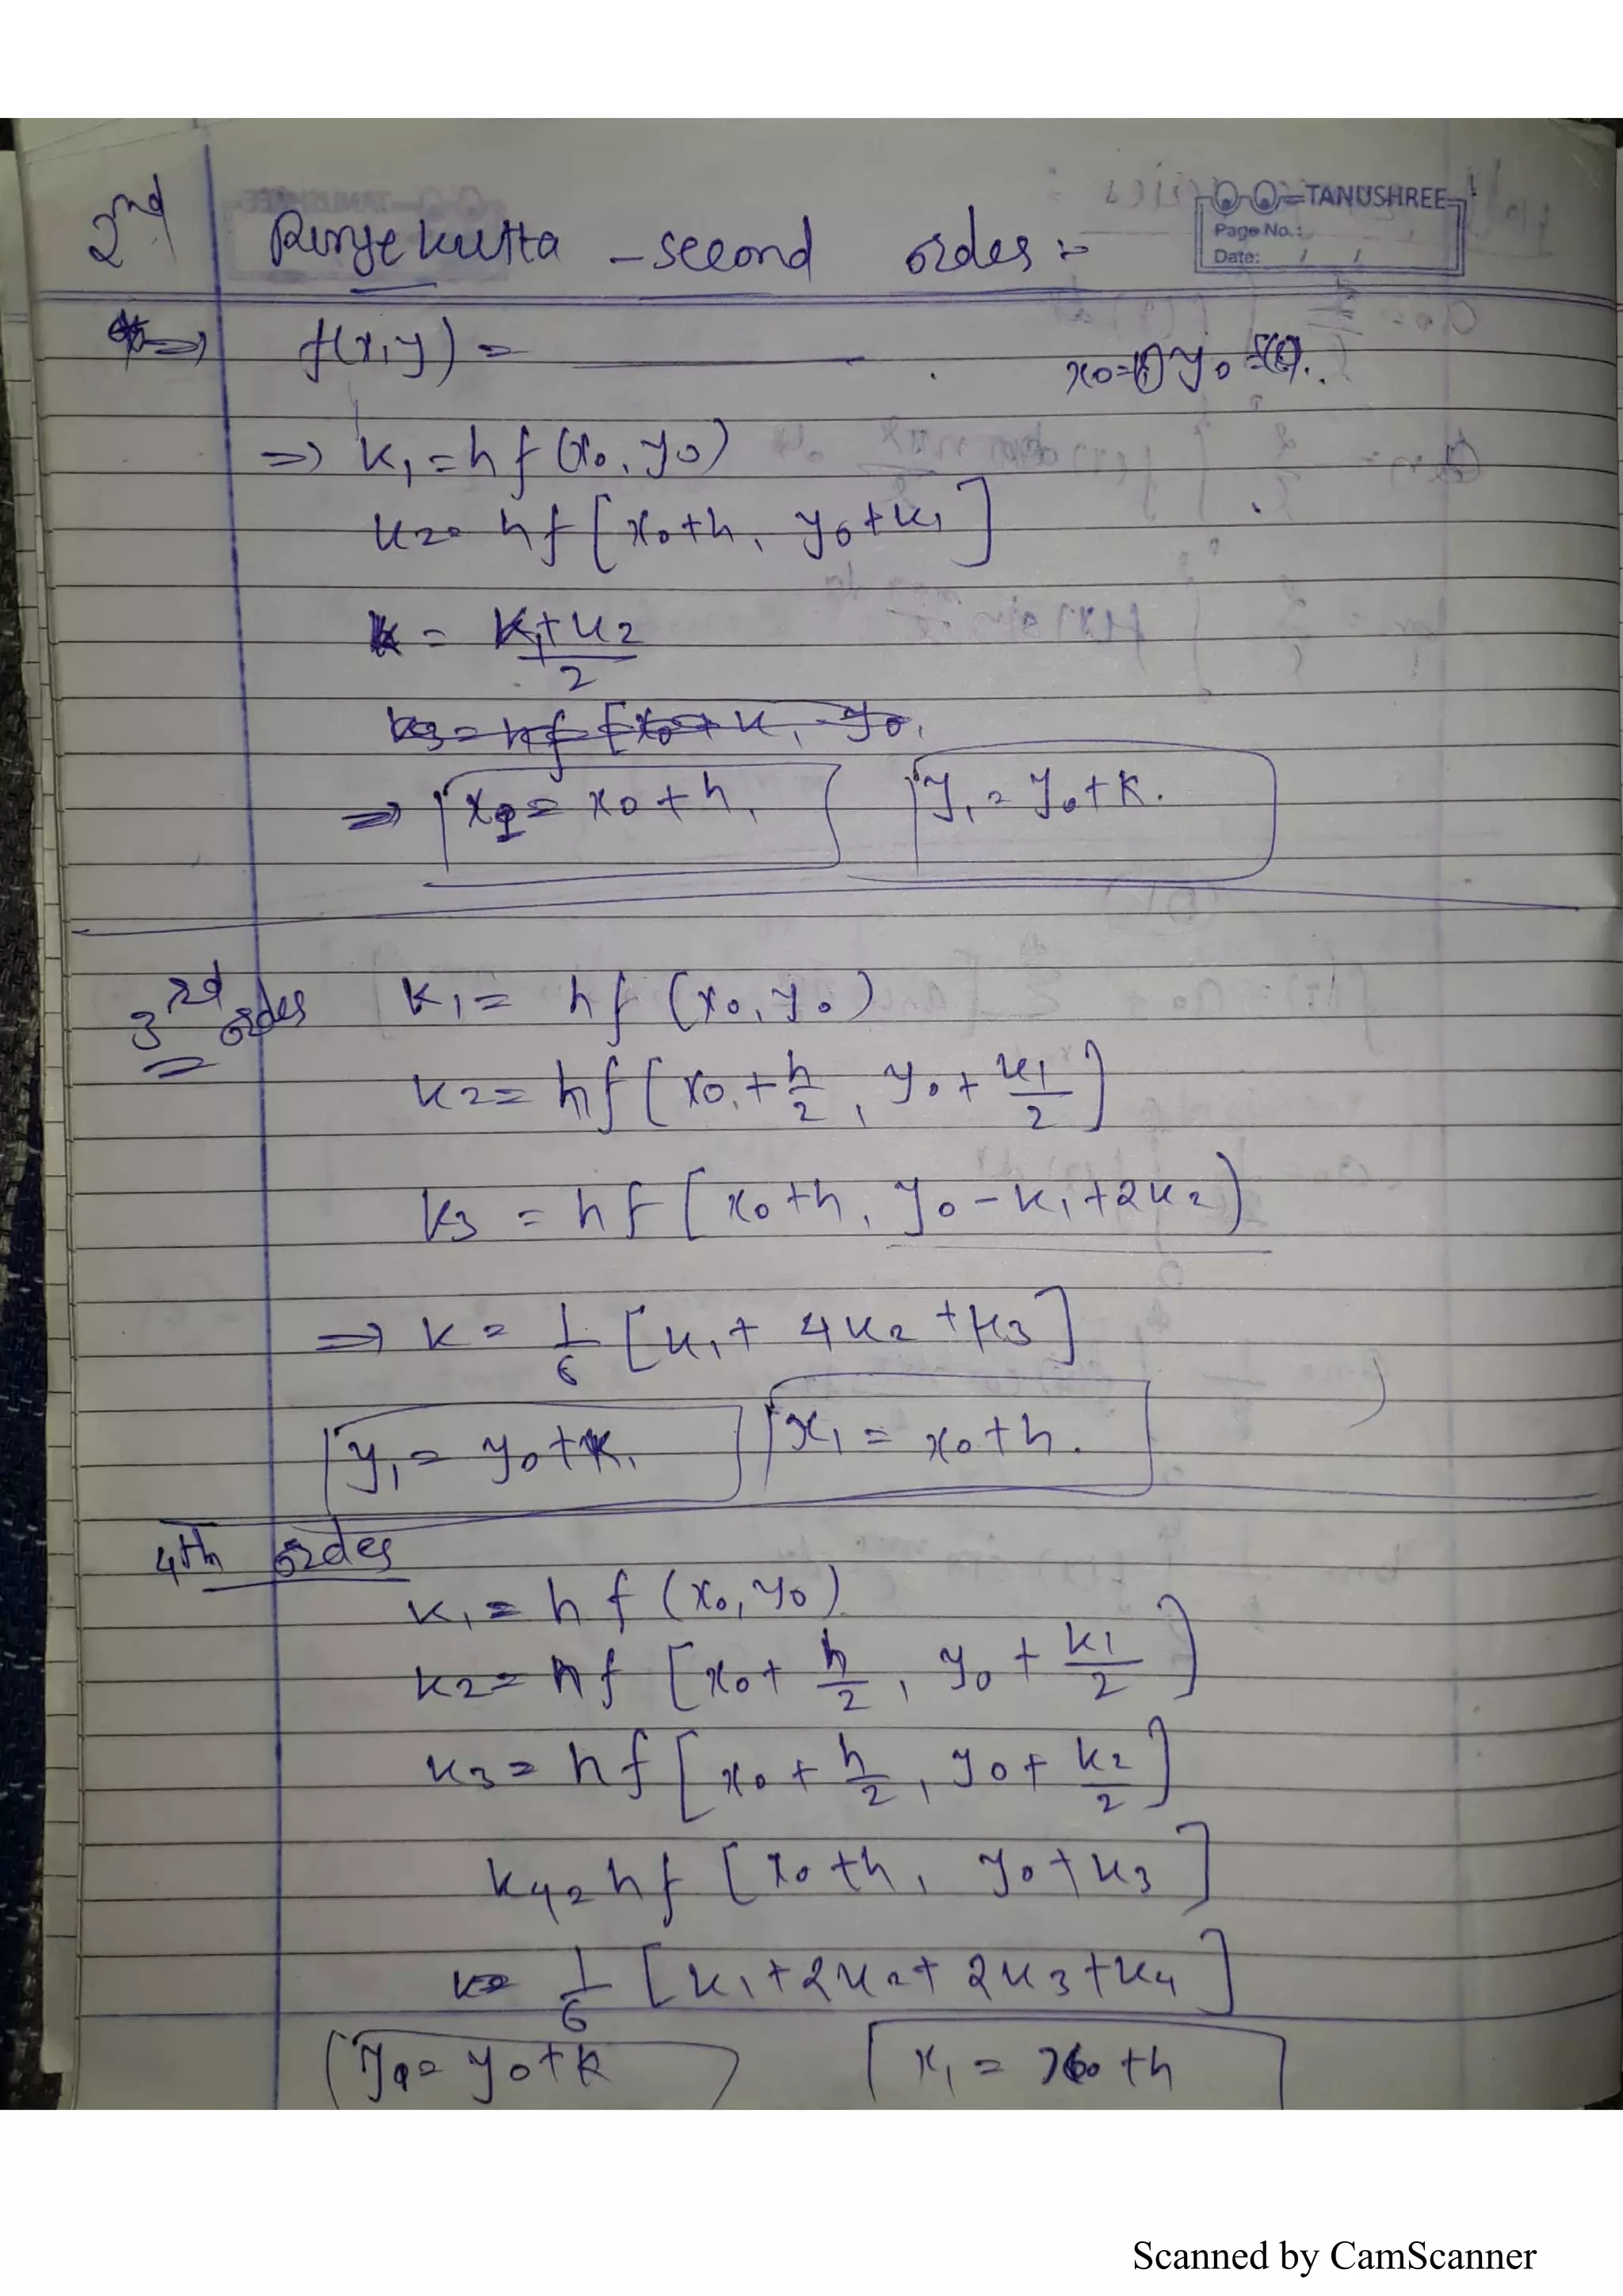 TANUSHREE
Page No.:
Date: / /
2nd Runge kutta - second order :-
=> f(x,y) = ________ . x0=( ) y0 =( )..
=> k1 = h f (x0, y0)
k2 = h f [x0+h, y0+k1]
k = k1+k2 / 2
k3 = hf [x0 + k, y0,
=> x1 = x0 + h, y1 = y0 + k.
3rd order k1 = h f (x0, y0)
k2 = hf [x0 + h/2, y0 + k1/2]
k3 = h f [x0 + h, y0 - k1 + 2k2)
=> k = 1/6 [k1 + 4k2 + k3]
y1 = y0 + k, x1 = x0 + h.
4th order
k1 = h f (x0, y0)
k2 = h f [x0 + h/2, y0 + k1/2]
k3 = h f [x0 + h/2, y0 + k2/2]
k4 = h f [x0 + h, y0 + k3]
k = 1/6 [k1 + 2k2 + 2k3 + k4]
y1 = y0 + k x1 = x0 + h
Scanned by CamScanner